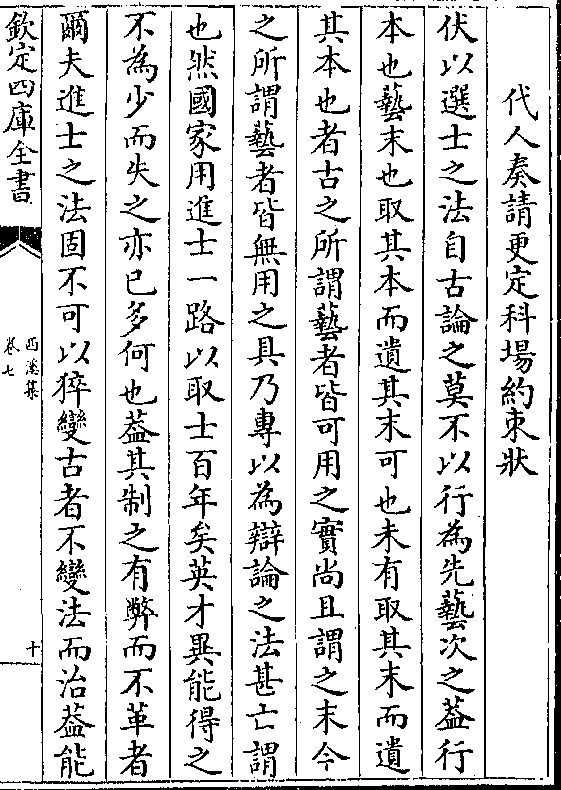 代人奏請更定科場約束狀
伏以選士之法自古論之莫不以行為先藝次之葢行
本也藝末也取其本而遺其末可也未有取其末而遺
其本也者古之所謂藝者皆可用之實尚且謂之末今
之所謂藝者皆無用之具乃專以為辯論之法甚亡謂
也然國家用進士一路以取士百年矣英才異能得之
不為少而失之亦已多何也葢其制之有弊而不革者
爾夫進士之法固不可以猝變古者不變法而治葢能
欽定四庫全書
西溪集
卷七
十